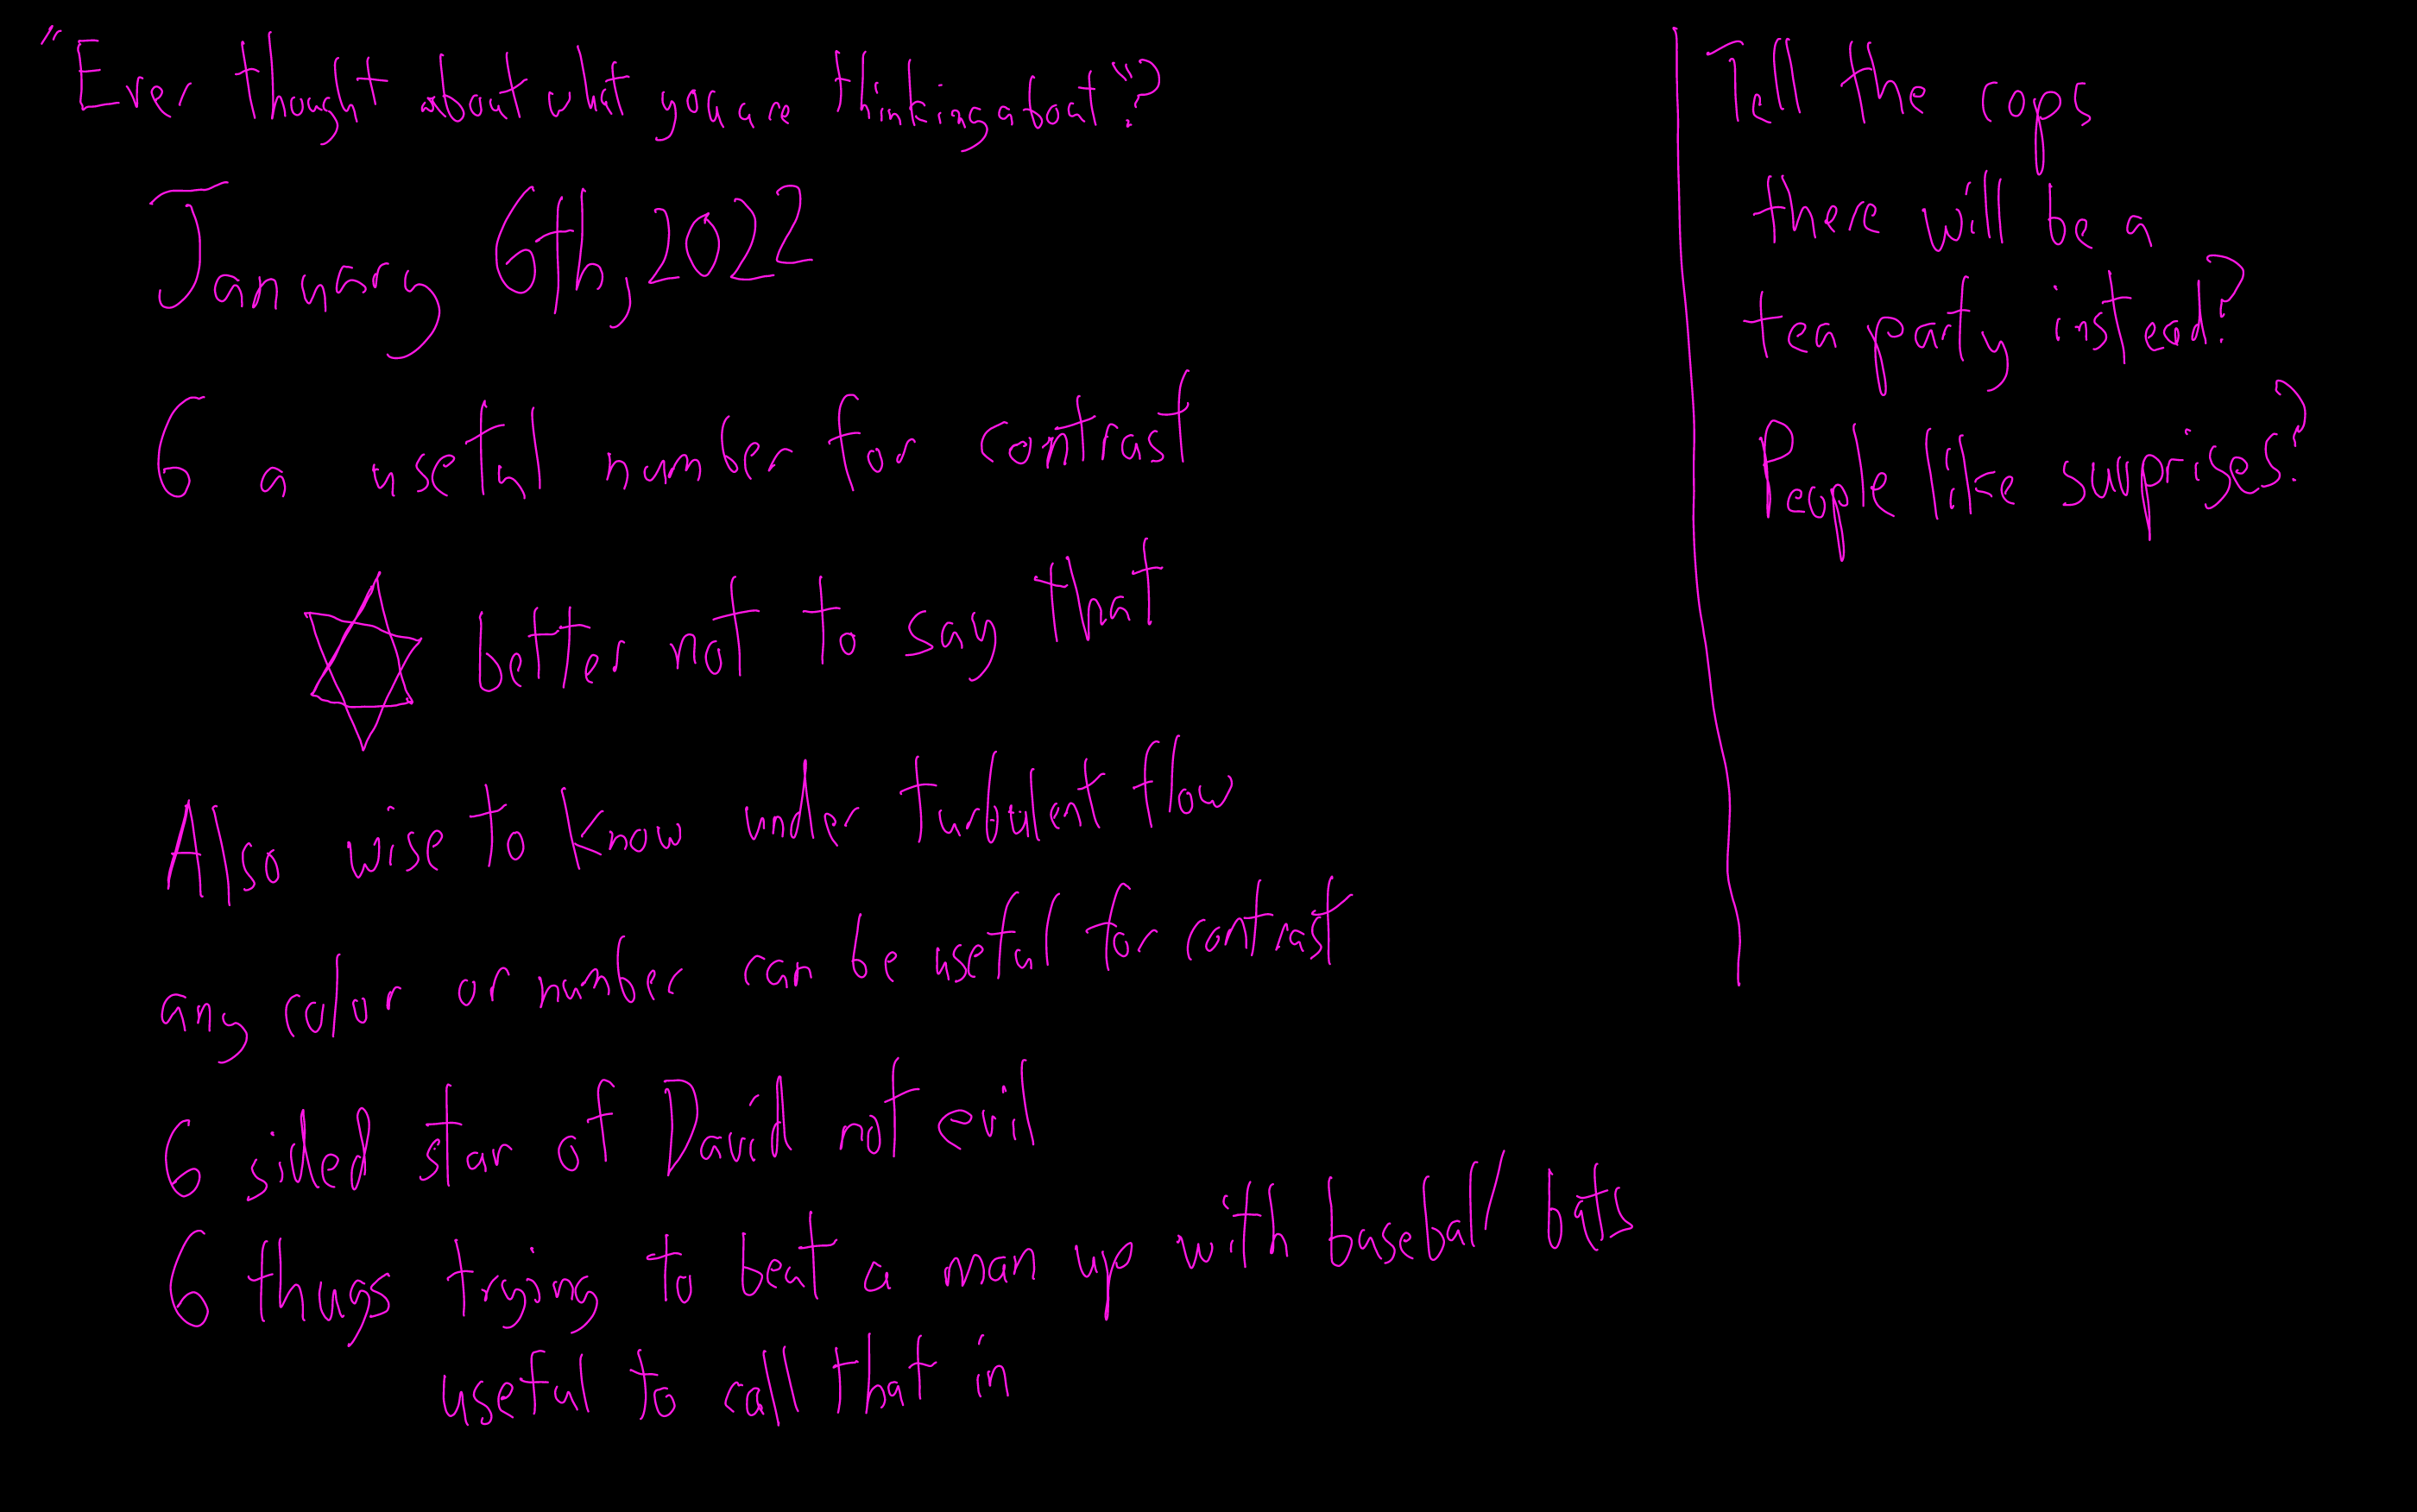 "Ever thought about what you are thinking about"?
January 6th, 2022
6 a useful number for contrast
better not to say that
Also wise to know under turbulent flow
any color or number can be useful for contrast
6 sided star of David not evil
6 thugs trying to beat a man up with baseball bats
useful to call that in
Tell the cops
there will be a
tea party instead?
People like surprises?